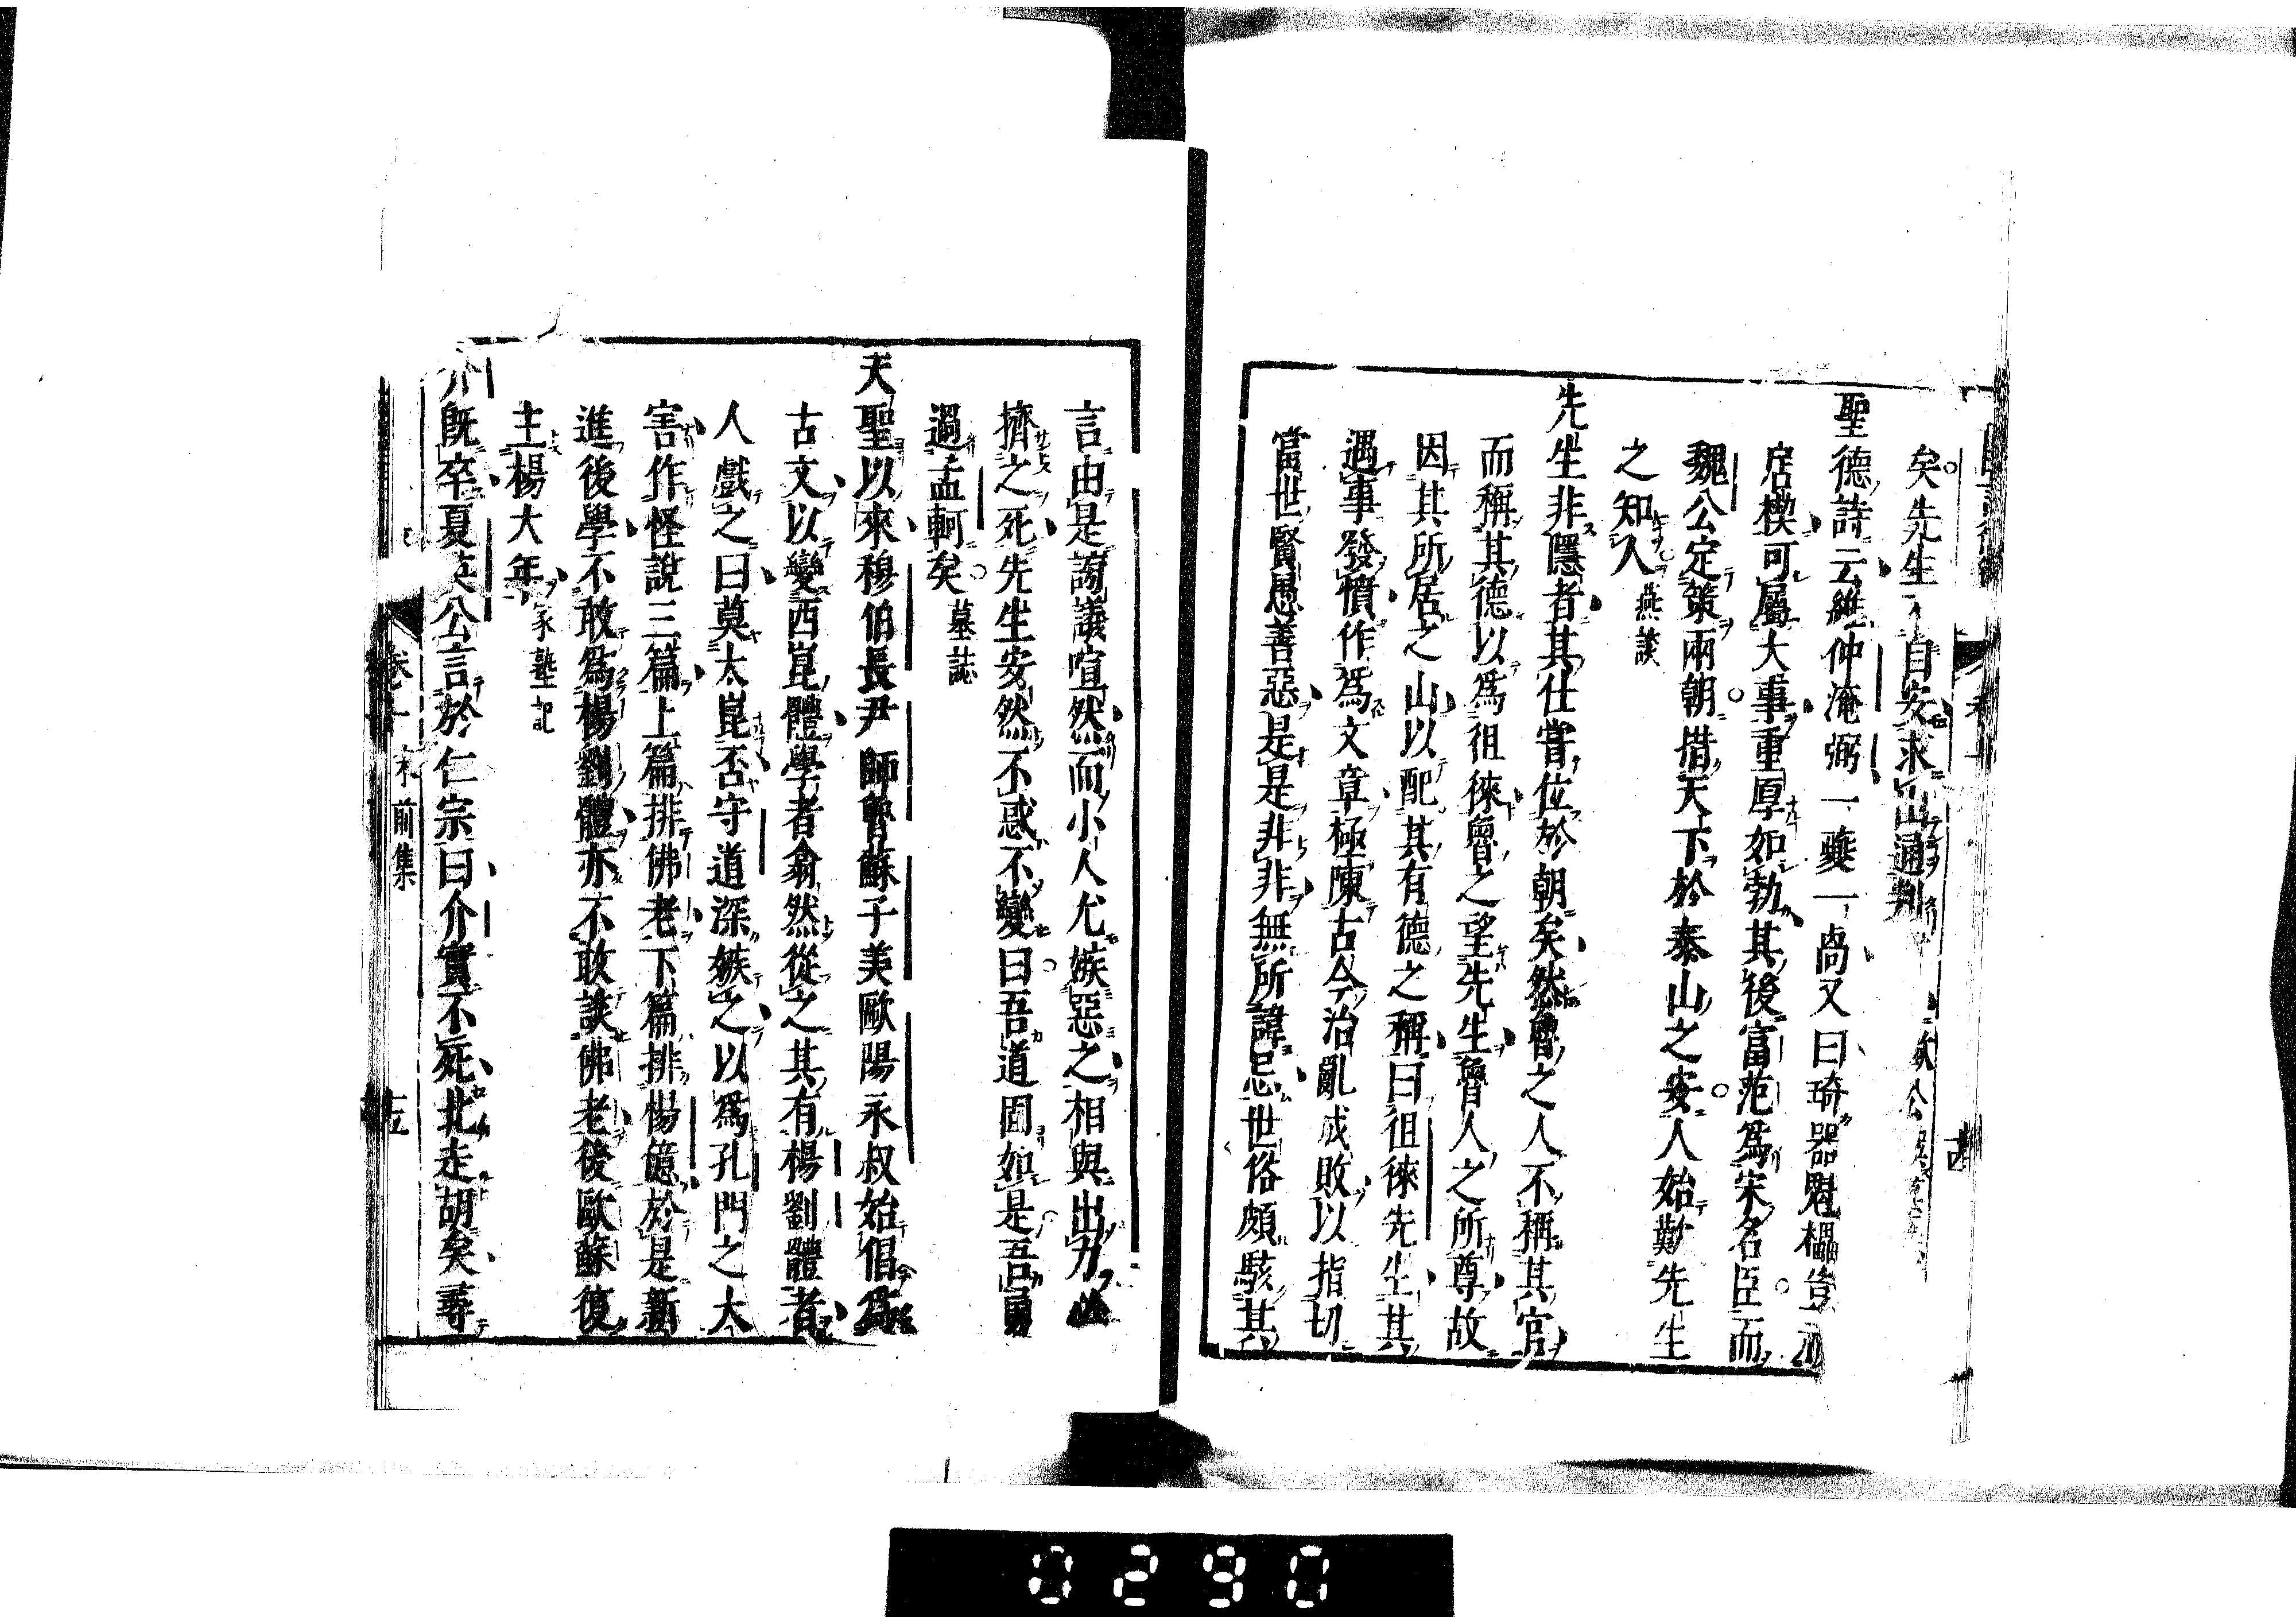 矣先生不自安求出通判
聖德詩云維仲淹弼一夔一卨又曰琦器魁櫑豈視
扂楔可屬大事重厚如勃其後富范爲宋名臣而
魏公定策兩朝措天下於泰山之安人始歎先生
之知人燕談
先生非隱者其仕嘗位於朝矣然魯之人不稱其官
而稱其德以爲徂徠魯之望先生魯人之所尊故
因其所居之山以配其有德之稱曰徂徠先生其
遇事發憤作爲文章極陳古今治亂成敗以指切
當世賢愚善惡是是非非無所諱忌世俗頗駭其
言由是謗議喧然而小人尤嫉惡之相與出力必
擠之死先生安然不惑不變曰吾道固如是吾勇
過孟軻矣墓誌
天聖以來穆伯長尹師魯蘇子美歐陽永叔始倡爲
古文以變西崑體學者翕然從之其有楊劉體者
人戲之曰莫太崑否守道深嫉之以爲孔門之大
害作怪說三篇上篇排佛老下篇排楊億於是新
進後學不敢爲楊劉體亦不敢談佛老後歐蘇復
主楊大年家塾記
介既卒夏英公言於仁宗曰介實不死北走胡矣尋
前集